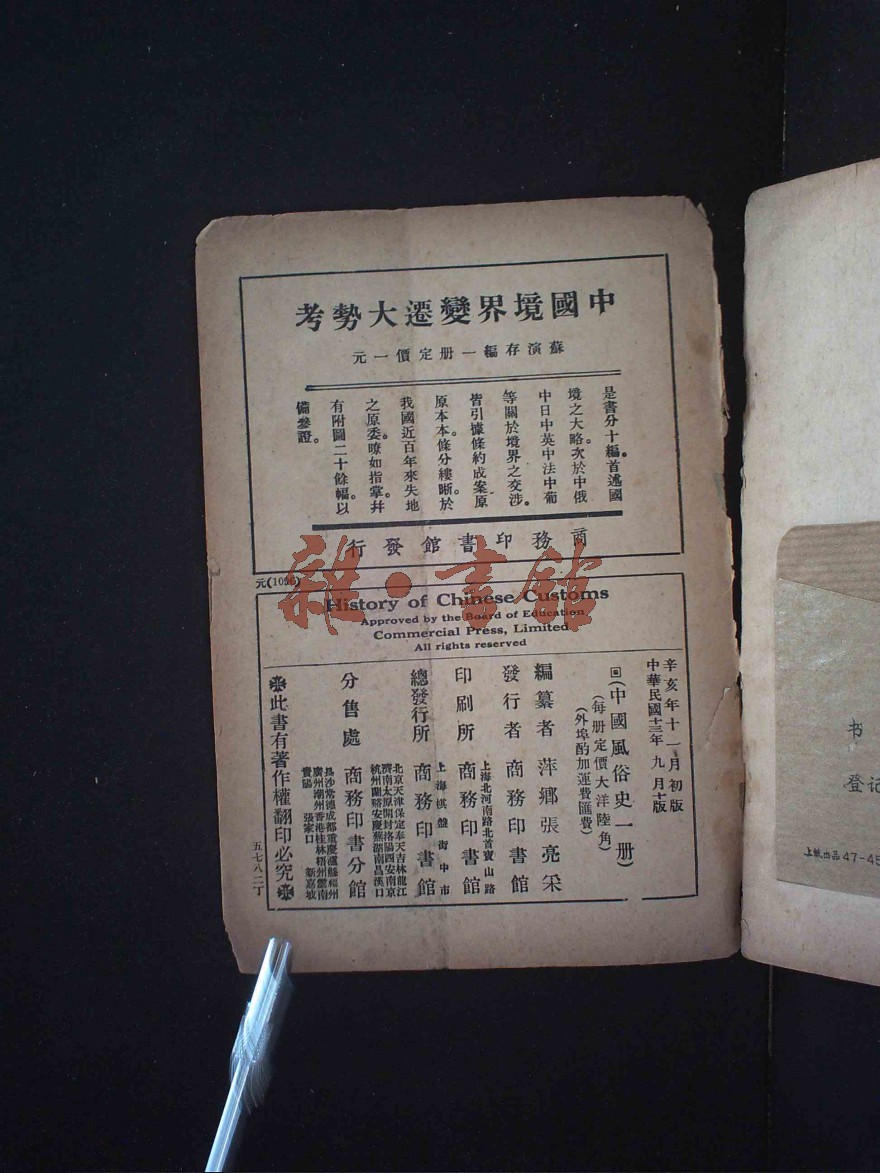 中國境界變遷大勢考
蘇演存編一册定價一元
是書分十編。首述國
境之大略。次於中俄
中日中英中法中葡
等關於境界之交涉。
皆引據條約成案原
原本本。條分縷晰。於
我國近百年來失地
之原委。瞭如指掌。幷
有附圖二十餘幅。以
備參證。
商務印書館發行
元(1056)
雜·書館
History of Chinese Customs
Approved by the Board of Education
Commercial Press, Limited
All rights reserved
辛亥年十一月初版
中華民國十三年九月十版
(中國風俗史一册)
(每册定價大洋陸角)
(外埠酌加運費匯費)
編纂者 萍鄉張亮采
發行者 商務印書館
上海北河南路北首寶山路
印刷所 商務印書館
上海棋盤街中市
總發行所 商務印書館
北京天津保定奉天吉林龍江
濟南太原開封洛陽西安南京
杭州蘭谿安慶蕪湖南昌漢口
分售處 商務印書分館
長沙常德成都重慶瀘縣福州
廣州潮州香港桂林梧州雲南
貴陽 張家口 新嘉坡
此書有著作權翻印必究
五七八二丁
书
登记
上紙出品47-45